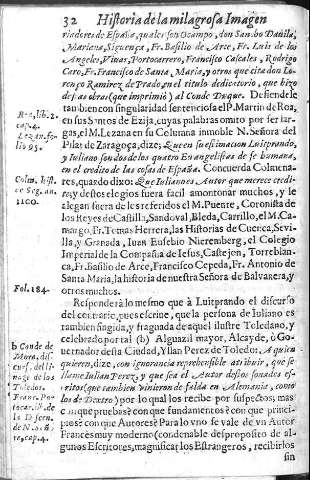 32 Historia de la milagrosa Imagen
riadores de España, quales son Ocampo, don Sancho Davila,
Mariana, Siguença, Fr. Basilio de Arce, Fr. Luis de los
Angeles, Vinas, Portocarrero, Francisco Cascales, Rodrigo
Caro, Fr. Francisco de Santa Maria, y otros que cita don Lo-
renço Ramirez de Prado, en el titulo dedicatorio, que hizo
de sus obras (que imprimiò) al Conde Duque. Defiendele
tambien con singularidad sentenciosa el P. Martin de Roa,
en sus Santos de Ezija, cuyas palabras omito por ser lar-
gas, el M. Lezana en su Columna inmoble N. Señora del
Pilar de Zaragoça, dize; Que en su estimacion Luitprando,
y Iuliano son dos de los quatro Euangelistas de fe humana,
en el credito de las cosas de España. Concuerda Colmena-
res, quando dixo: Que Iuliano es Autor que merece credi-
to, y destos elogios fuera facil amontonar muchos, y le
alegan fuera de los referidos el M. Puente, Coronista de
los Reyes de Castilla, Sandoval, Bleda, Carrillo, el M. Ca-
margo, Fr. Tomas Herrera, las Historias de Cuenca, Sevi-
lla, y Granada, Iuan Eusebio Nieremberg, el Colegio
Imperial de la Compañia de Iesus, Castejon, Torreblan-
ca, Fr. Basilio de Arce, Francisco Cepeda, Fr. Antonio de
Santa Maria, la historia de nuestra Señora de Balvanera, y
otros muchos.
Responderà lo mesmo que à Luitprando el discurso
del contrario, pues escrive, que la persona de Iuliano es
tambien fingida, y fraguada de aquel ilustre Toledano, y
celebrado por tal (b) Alguazil mayor, Alcayde, ò Go-
uernador desta Ciudad, Yllan Perez de Toledo, A quien
quieren, dize, con ignorancia reprehensible atribuir, que se
llame Iulian Perez, y que sea el Autor destos soñados es-
critos (que tambien vinieron de Fulda en Alemania, como
los de Dextro) por lo qual los recibe por suspectos; mas
con que pruebas? con que fundamentos? con que princi-
pios? con que Autores? Para lo vno se vale de vn Autor
Francès muy moderno (condenable desproposito de al-
gunos Escritores, magnificar los Estrangeros, recibirlos
sin
Roa, lib. 2.
cap. 4.
Lezan. fo-
lio 95.
Colm. hist.
de Seg. an.
1100.
Fol. 184.
b Conde de
Mora, dis-
curs. del li-
nage de los
Toledos.
Franc. Por-